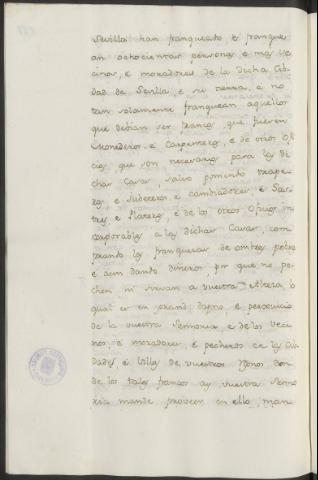 Sevilla han franqueado, é franque
an ochocientas personas é mas ve
cinos, é moradores de la dicha Cib
dad de Sevilla, é su tierra, é no
tan solamente franquean aquellos
que debian ser francos, que fuesen
Monederos é Carpenteros, é de otros Ofi
cios que son necesarios para las di
chas Casas, salvo poniendo trape
ros é Joderos é cambiadores é Sas
tres é Plateros é de los otros Oficios in
corporables á las dichas Casas, com
prando las franquezas de ombres
é aun dando dineros por que no pe
chen ni sirvan a vuestra Alteza, lo
qual es en grand dapno, é perjuicio
de la vuestra Señoria é de los veci
nos, é moradores, é pecheros de las Cib
dades, é Villas de vuestros Regnos don
de los tales francos ay vuestra Seño
ria mande proveer en ello, man